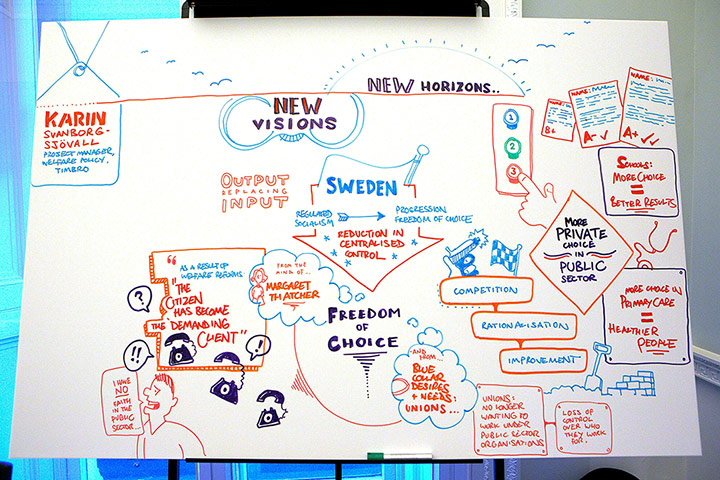 KARIN
SVANBORG-
SJÖVALL
PROJECT MANAGER,
WELFARE POLICY,
TIMBRO
NEW HORIZONS..
NEW
VISIONS
OUTPUT
REPLACING
INPUT
SWEDEN
REGULATED
SOCIALISM
PROGRESSION
FREEDOM OF CHOICE
REDUCTION IN
CENTRALISED
CONTROL
1
2
3
NAME:
B+
NAME:
A-
NAME:
A+
SCHOOLS:
MORE CHOICE
=
BETTER RESULTS
MORE
PRIVATE
CHOICE
IN
PUBLIC
SECTOR
MORE CHOICE IN
PRIMARY CARE
=
HEALTHIER
PEOPLE
"AS A RESULT OF
WELFARE REFORMS:
"THE
CITIZEN
HAS BECOME
THE DEMANDING
CLIENT"
?
!!
!
FROM THE
MIND OF...
MARGARET
THATCHER
FREEDOM
OF
CHOICE
AND
FROM...
BLUE
COLLAR
DESIRES
+ NEEDS:
UNIONS...
COMPETITION
RATIONALISATION
IMPROVEMENT
I HAVE
NO
FAITH
IN THE
PUBLIC
SECTOR...
UNIONS:
NO LONGER
WANTING TO
WORK UNDER
PUBLIC SECTOR
ORGANISATIONS
LOSS OF
CONTROL
OVER WHO
THEY WORK
FOR.